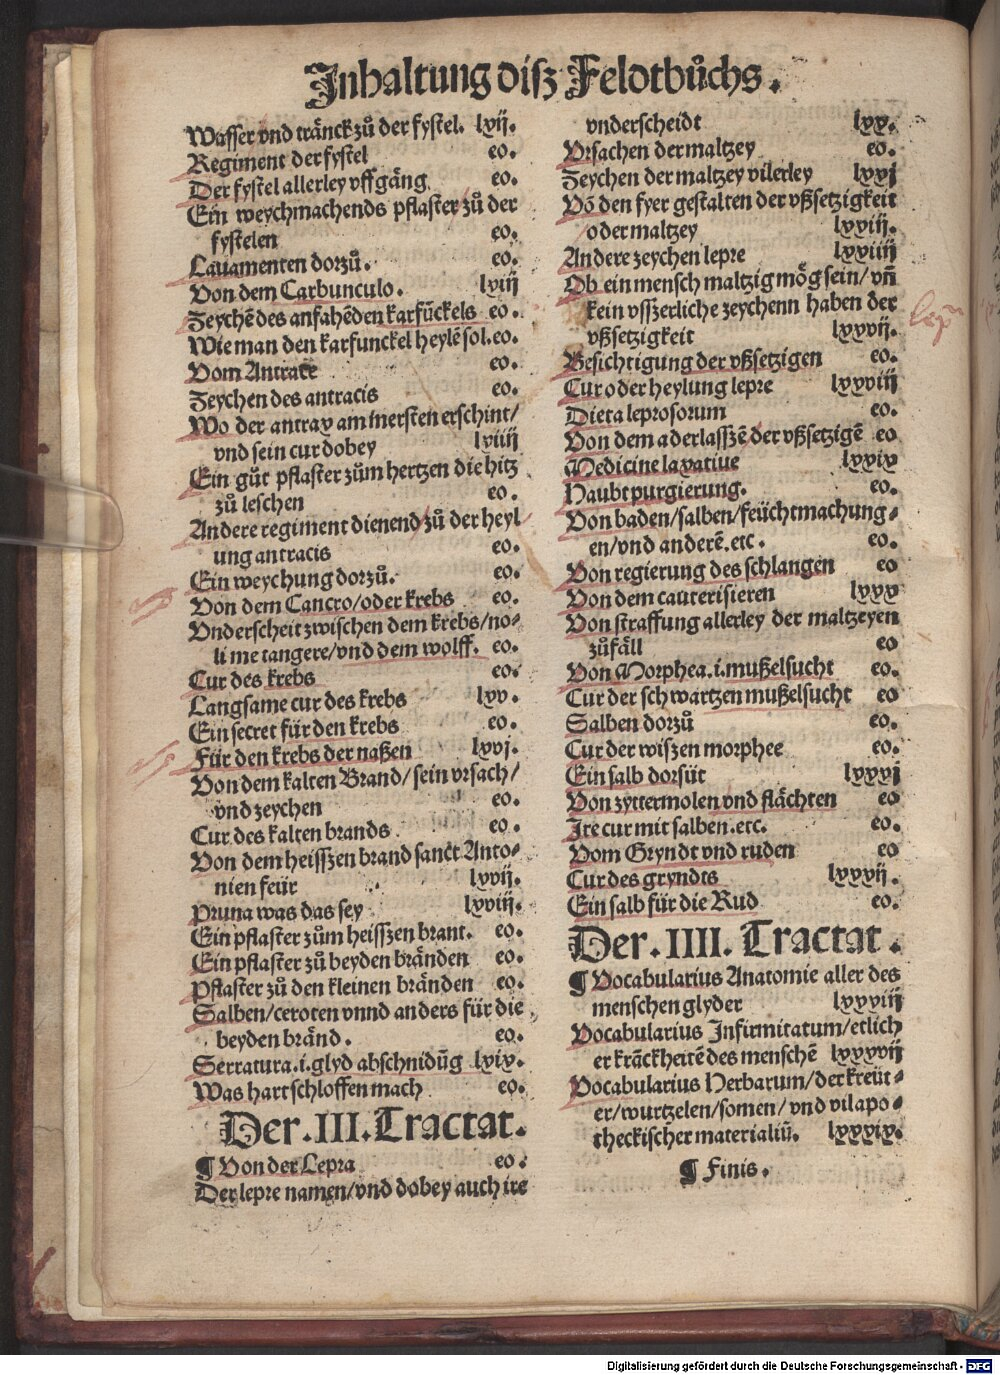 Inhaltung diſz Feldtbůchs.
Waſſer vnd tränck zů der fyſtel. lxij.
Regiment der fyſtel eo.
Der fyſtel allerley vffgäng eo.
Ein weychmachends pflaſter zů der
fyſtelen eo.
Lauamenten dorzů. eo.
Von dem Carbunculo. lxiij
Zeychē des anfahēden karfückels eo.
Wie man den karfunckel heylē ſol. eo.
Vom Antrace eo.
Zeychen des antracis eo.
Wo der antrax am inerſten erſchint/
vnd ſein cur dobey lxiiij
Ein gůt pflaſter zům hertzen die hitz
zů leſchen eo.
Andere regiment dienend zů der heyl
ung antracis eo.
Ein weychung dorzů. eo.
Von dem Cancro/oder krebs eo.
Vnderſcheit zwiſchen dem krebs/no⸗
li me tangere/vnd dem wolff. eo.
Cur des krebs eo.
Langſame cur des krebs lxv.
Ein ſecret für den krebs eo.
Für den krebs der naßen lxvj.
Von dem kalten Brand/ſein vrſach/
vnd zeychen eo.
Cur des kalten brands eo.
Von dem heiſſzen brand ſanct Anto⸗
nien feür lxvij.
Pruna was das ſey lxviij.
Ein pflaſter zům heiſſzen brant. eo.
Ein pflaſter zů beyden bränden eo.
Pflaſter zů den kleinen bränden eo.
Salben/ceroten vnnd anders für die
beyden bränd. eo.
Serratura.i.glyd abſchnidūg lxix.
Was hart ſchloffen mach eo.
Der.III.Tractat.
¶ Von der Lepra eo.
Der lepre namen/vnd dobey auch ire
vnderſcheidt lxx.
Vrſachen der maltzey eo.
Zeychen der maltzey vilerley lxxj
Vō den fyer geſtalten der vßſetzigkeit
oder maltzey lxxiij.
Andere zeychen lepre lxxiiij
Ob ein menſch maltzig mög ſein/vn̄
kein vſſzerliche zeychenn haben der
vßſetzigkeit lxxvij.
Beſichtigung der vßſetzigen eo.
Cur oder heylung lepre lxxviij
Dieta leproſorum eo.
Von dem aderlaſſzē der vßſetzigē eo
Medicine laxatiue lxxix
Haubt purgierung. eo.
Von baden/ſalben/feüchtmachung⸗
en/vnd anderē.etc. eo.
Von regierung des ſchlangen eo
Von dem cauteriſieren lxxx
Von ſtraffung allerley der maltzeyen
zůfäll eo
Von Morphea.i.mußelſucht eo.
Cur der ſchwartzen mußelſucht eo
Salben dorzů eo.
Cur der wiſzen morphee eo.
Ein ſalb dorfüt lxxxj
Von zyttermolen vnd flächten eo
Ire cur mit ſalben.etc. eo.
Vom Gryndt vnd ruden eo
Cur des gryndts lxxxij.
Ein ſalb für die Rud eo.
Der.IIII.Tractat.
¶ Vocabularius Anatomie aller des
menſchen glyder lxxxiij
Vocabularius Infirmitatum/etlich
er kräckheitē des menſchē lxxxvij
Vocabularius Herbarum/der kreüt⸗
er/wurtzelen/ſomen/vnd vil apo⸗
theckiſcher materialiū. lxxxix.
¶ Finis.
Digitalisierung gefördert durch die Deutsche Forschungsgemeinschaft - DFG